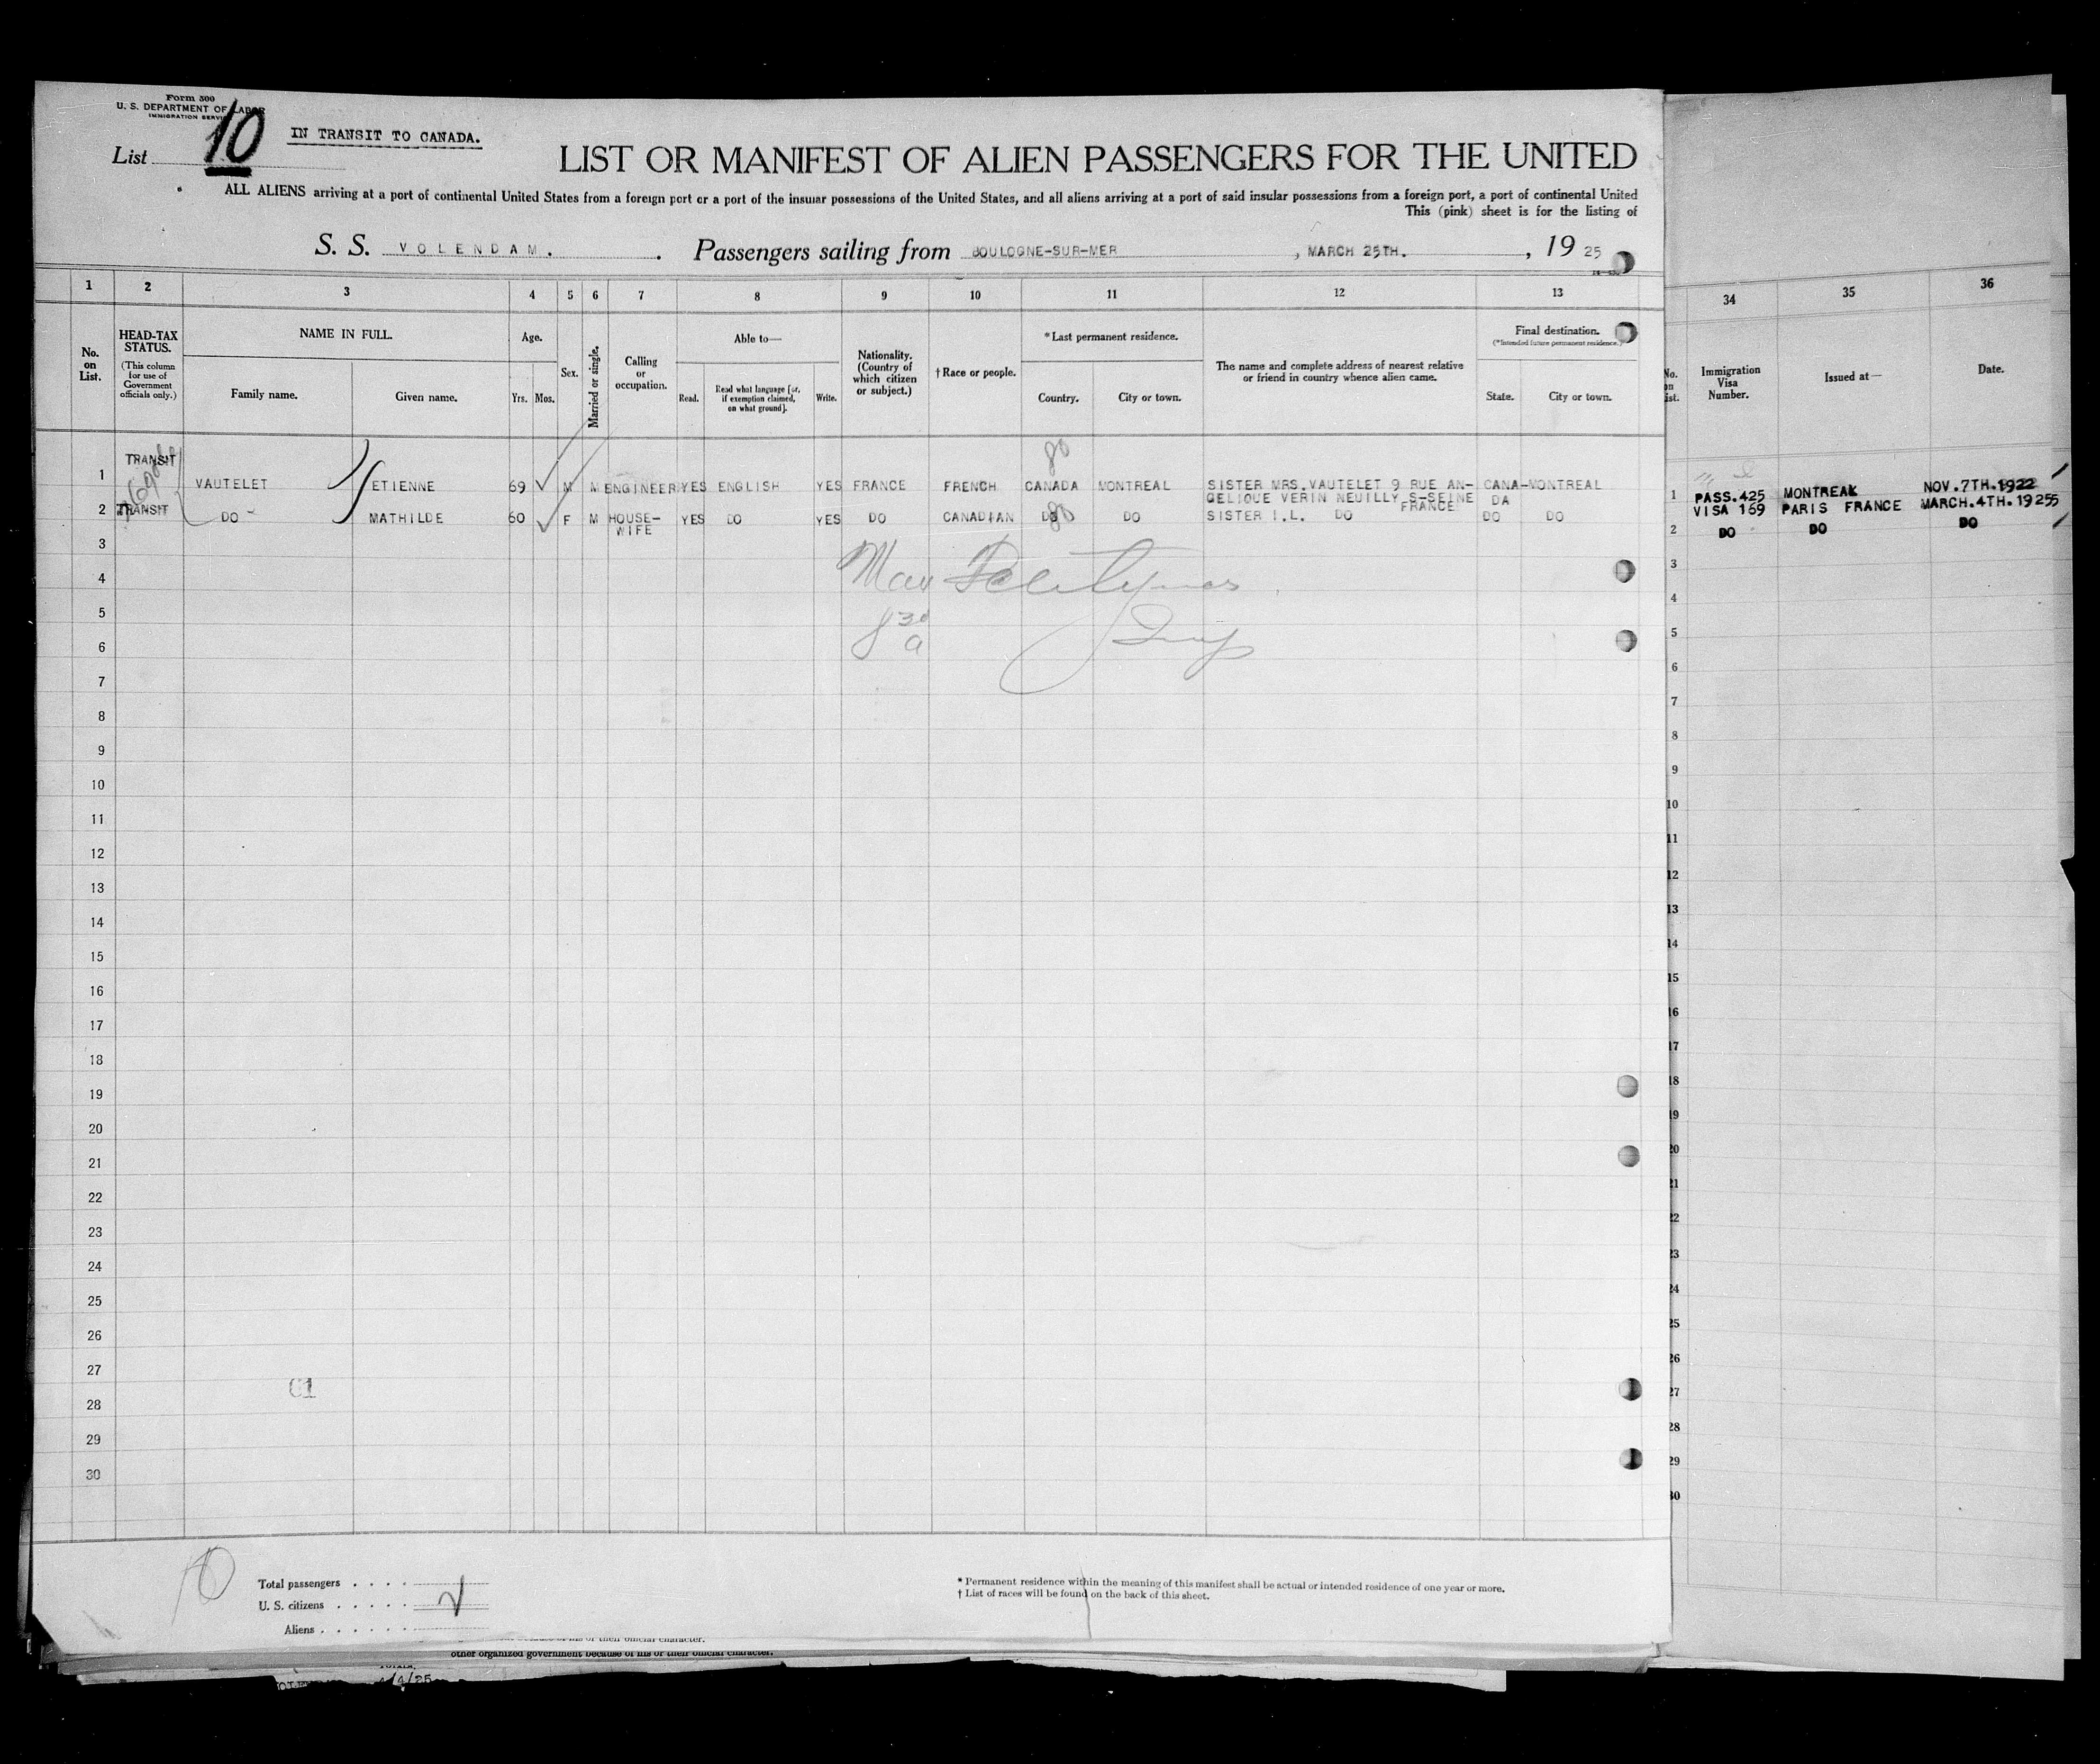 Form 500
U. S. DEPARTMENT OF LABOR
IMMIGRATION SERVICE
List 10
IN TRANSIT TO CANADA.
LIST OR MANIFEST OF ALIEN PASSENGERS FOR THE UNITED
ALL ALIENS arriving at a port of continental United States from a foreign port or a port of the insular possessions of the United States, and all aliens arriving at a port of said insular possessions from a foreign port, a port of continental United
This (pink) sheet is for the listing of
S. S. VOLENDAM. Passengers sailing from BOULOGNE-SUR-MER, MARCH 25TH., 19 25
1 2 3 4 5 6 7 8 9 10 11 12 13 34 35 36
No. on List.
HEAD-TAX STATUS.
(This column for use of Government officials only.)
NAME IN FULL.
Family name. Given name.
Age.
Yrs. Mos.
Sex.
Married or single.
Calling or occupation.
Able to—
Read. Read what language [or, if exemption claimed, on what ground]. Write.
Nationality. (Country of which citizen or subject.)
† Race or people.
* Last permanent residence.
Country. City or town.
The name and complete address of nearest relative or friend in country whence alien came.
Final destination.
(* Intended future permanent residence.)
State. City or town.
No. on List.
Immigration Visa Number.
Issued at—
Date.
80
TRANSIT
1 VAUTELET ETIENNE 69 M M ENGINEER YES ENGLISH YES FRANCE FRENCH CANADA MONTREAL SISTER MRS. VAUTELET 9 RUE AN- CANA- MONTREAL
GELIQUE VERIN NEUILLY S-SEINE DA
FRANCE
1 PASS.425 MONTREAL NOV.7TH.1922
VISA 169 PARIS FRANCE MARCH.4TH.1925
TRANSIT
2 DO MATHILDE 60 F M HOUSE- YES DO YES DO CANADIAN DO DO SISTER I.L. DO DO DO
WIFE
80
2 DO DO DO
3
4
5
8 30 a
6
7
8
9
10
11
12
13
14
15
16
17
18
19
20
21
22
23
24
25
26
27
61
28
29
30
10
Total passengers
U. S. citizens
Aliens
* Permanent residence within the meaning of this manifest shall be actual or intended residence of one year or more.
† List of races will be found on the back of this sheet.
other organized government because of his or their official character.
4/4/25